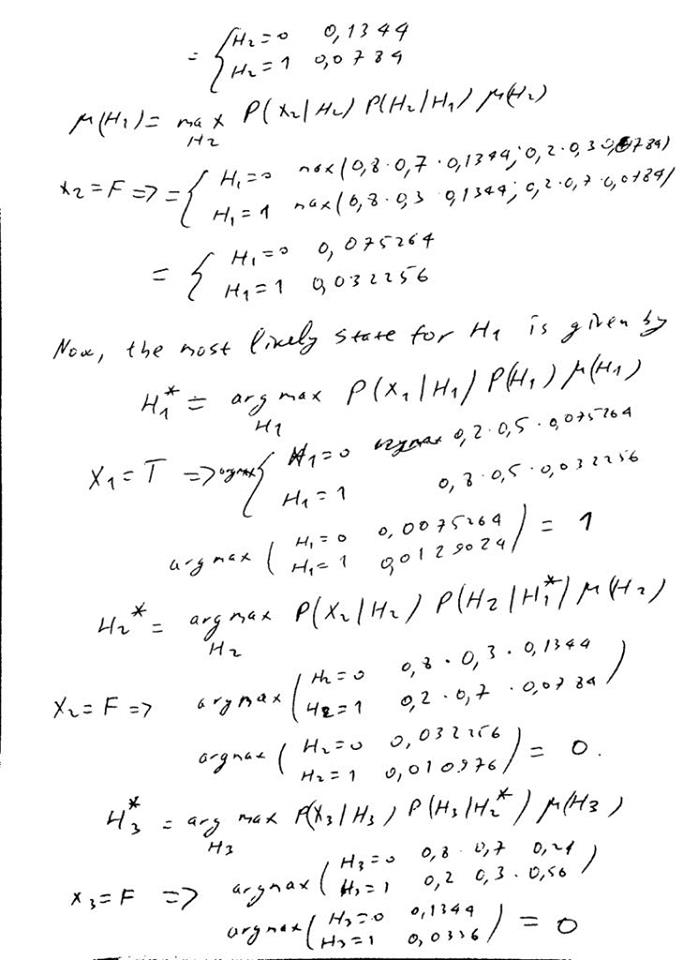 = { H₂=0 0,1344
H₂=1 0,0784
μ(H₁) = max P(x₂|H₂) P(H₂|H₁) μ(H₂)
H₂
x₂=F => = { H₁=0 max(0,8·0,7·0,1344; 0,2·0,3·0,0784)
H₁=1 max(0,8·0,3 0,1344; 0,2·0,7·0,0784)
= { H₁=0 0,075264
H₁=1 0,032256
Now, the most likely state for H₁ is given by
H₁* = arg max P(x₁|H₁) P(H₁) μ(H₁)
H₁
X₁=T => argmax { H₁=0 0,2·0,5·0,075264
H₁=1 0,8·0,5·0,032256
argmax ( H₁=0 0,0075264
H₁=1 0,0129024 ) = 1
H₂* = arg max P(x₂|H₂) P(H₂|H₁*) μ(H₂)
H₂
X₂=F => argmax ( H₂=0 0,8·0,3·0,1344
H₂=1 0,2·0,7·0,0784 )
argmax ( H₂=0 0,032256
H₂=1 0,010976 ) = 0.
H₃* = arg max P(X₃|H₃) P(H₃|H₂*) μ(H₃)
H₃
x₃=F => argmax ( H₃=0 0,8 0,7 0,24
H₃=1 0,2 0,3·0,56 )
argmax ( H₃=0 0,1344
H₃=1 0,0336 ) = 0